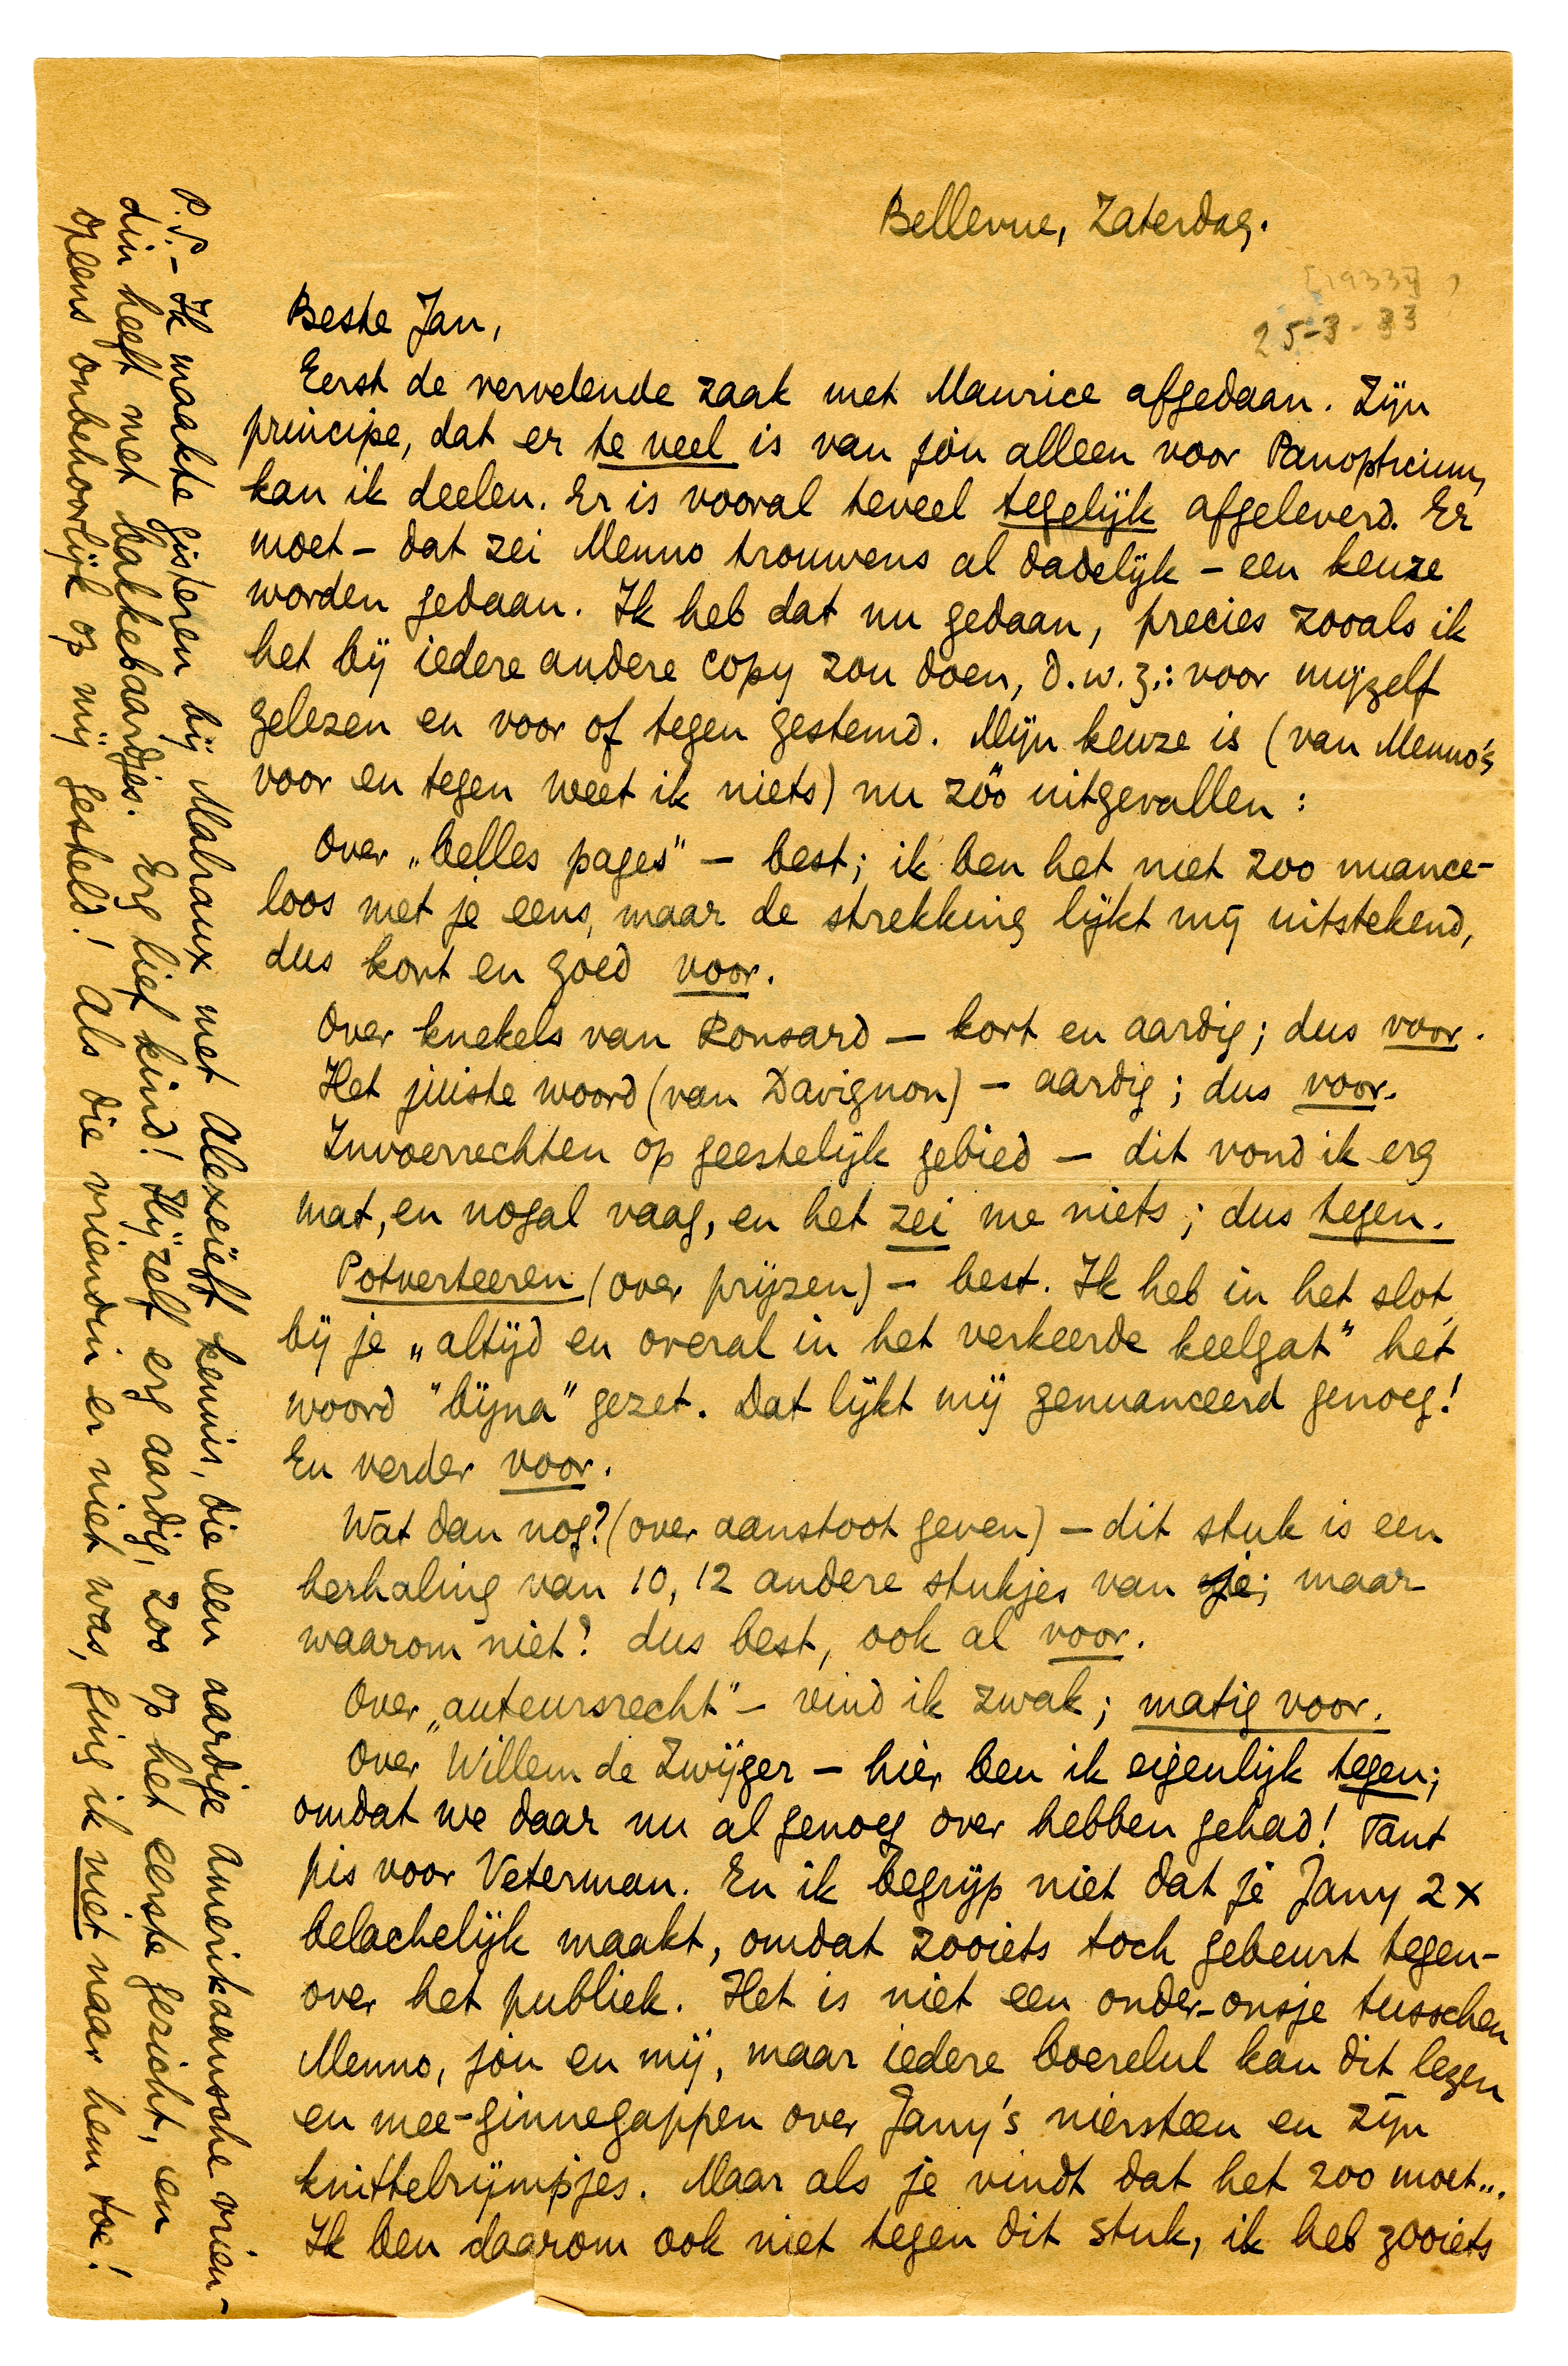 Bellevue, Zaterdag.
[1933]
25-3-33
Beste Jan,
Eerst de vervelende zaak met Maurice afgedaan. Zijn
principe, dat er te veel is van jòu alleen voor Panopticum,
kan ik deelen. Er is vooral teveel tegelijk afgeleverd. Er
moet - dat zei Menno trouwens al dadelijk - een keuze
worden gedaan. Ik heb dat nu gedaan, precies zooals ik
het bij iedere andere copy zou doen, d.w.z.: voor mijzelf
gelezen en voor of tegen gestemd. Mijn keuze is (van Menno's
voor en tegen weet ik niets) nu zóó uitgevallen:
Over „belles pages" - best; ik ben het niet zoo nuance-
loos met je eens, maar de strekking lijkt mij uitstekend,
dus kort en goed voor.
Over knekels van Ronsard - kort en aardig; dus voor.
Het juiste woord (van Davignon) - aardig; dus voor.
Invoerrechten op geestelijk gebied - dit vond ik erg
mat, en nogal vaag, en het zei me niets; dus tegen.
Potverteeren (over prijzen) - best. Ik heb in het slot,
bij je „altijd en overal in het verkeerde keelgat" het
woord "bijna" gezet. Dat lijkt mij genuanceerd genoeg!
En verder voor.
Wat dan nog? (over aanstoot geven) - dit stuk is een
herhaling van 10, 12 andere stukjes van je; maar
waarom niet? dus best, ook al voor.
Over „auteursrecht" - vind ik zwak; matig voor.
Over Willem de Zwijger - hier ben ik eigenlijk tegen;
omdat we daar nu al genoeg over hebben gehad! Tant
pis voor Veterman. En ik begrijp niet dat je Jany 2x
belachelijk maakt, omdat zooiets toch gebeurt tegen-
over het publiek. Het is niet een onder-onsje tusschen
Menno, jou en mij, maar iedere boerelul kan dit lezen
en mee-ginnegappen over Jany's niersteen en zijn
knittelrijmpjes. Maar als je vindt dat het zoo moet...
Ik ben daarom ook niet tegen dit stuk, ik heb zooiets
P.S. - Ik maakte gisteren bij Malraux met Alexeïeff kennis, die een aardige Amerikaansche vrien-
din heeft met bakkebaardjes. Erg lief kind! Hijzelf erg aardig, zoo op het eerste gezicht, en
opeens onbehoorlijk op mij gesteld! Als die vriendin er niet was, ging ik niet naar hem toe!